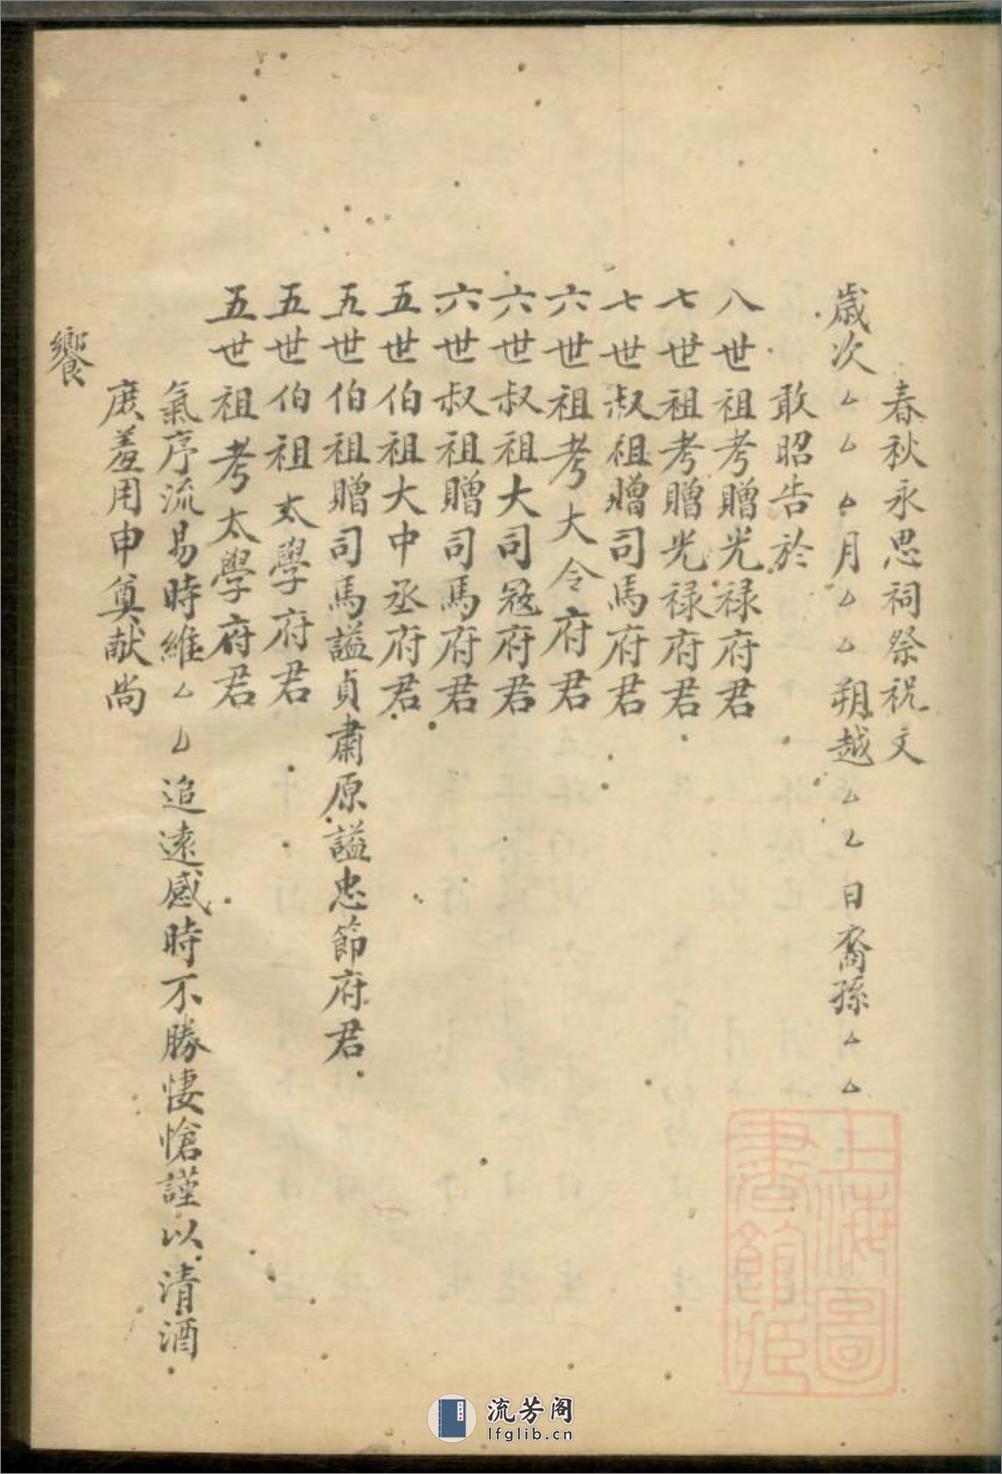 春秋永思祠祭祝文
歲次厶厶厶月厶厶朔越厶厶日裔孫厶厶
敢昭告於
八世祖考贈光祿府君
七世祖考贈光祿府君
七世叔祖贈司馬府君
六世祖考大令府君
六世叔祖大司冦府君
六世叔祖贈司馬府君
五世伯祖大中丞府君
五世伯祖贈司馬謚貞肅原謚忠節府君
五世伯祖太學府君
五世祖考太學府君
氣序流易時維厶厶追遠感時不勝悽愴謹以清酒
庶羞用申奠献尚
饗
上海圖
書館藏
流芳阁
lfglib.cn